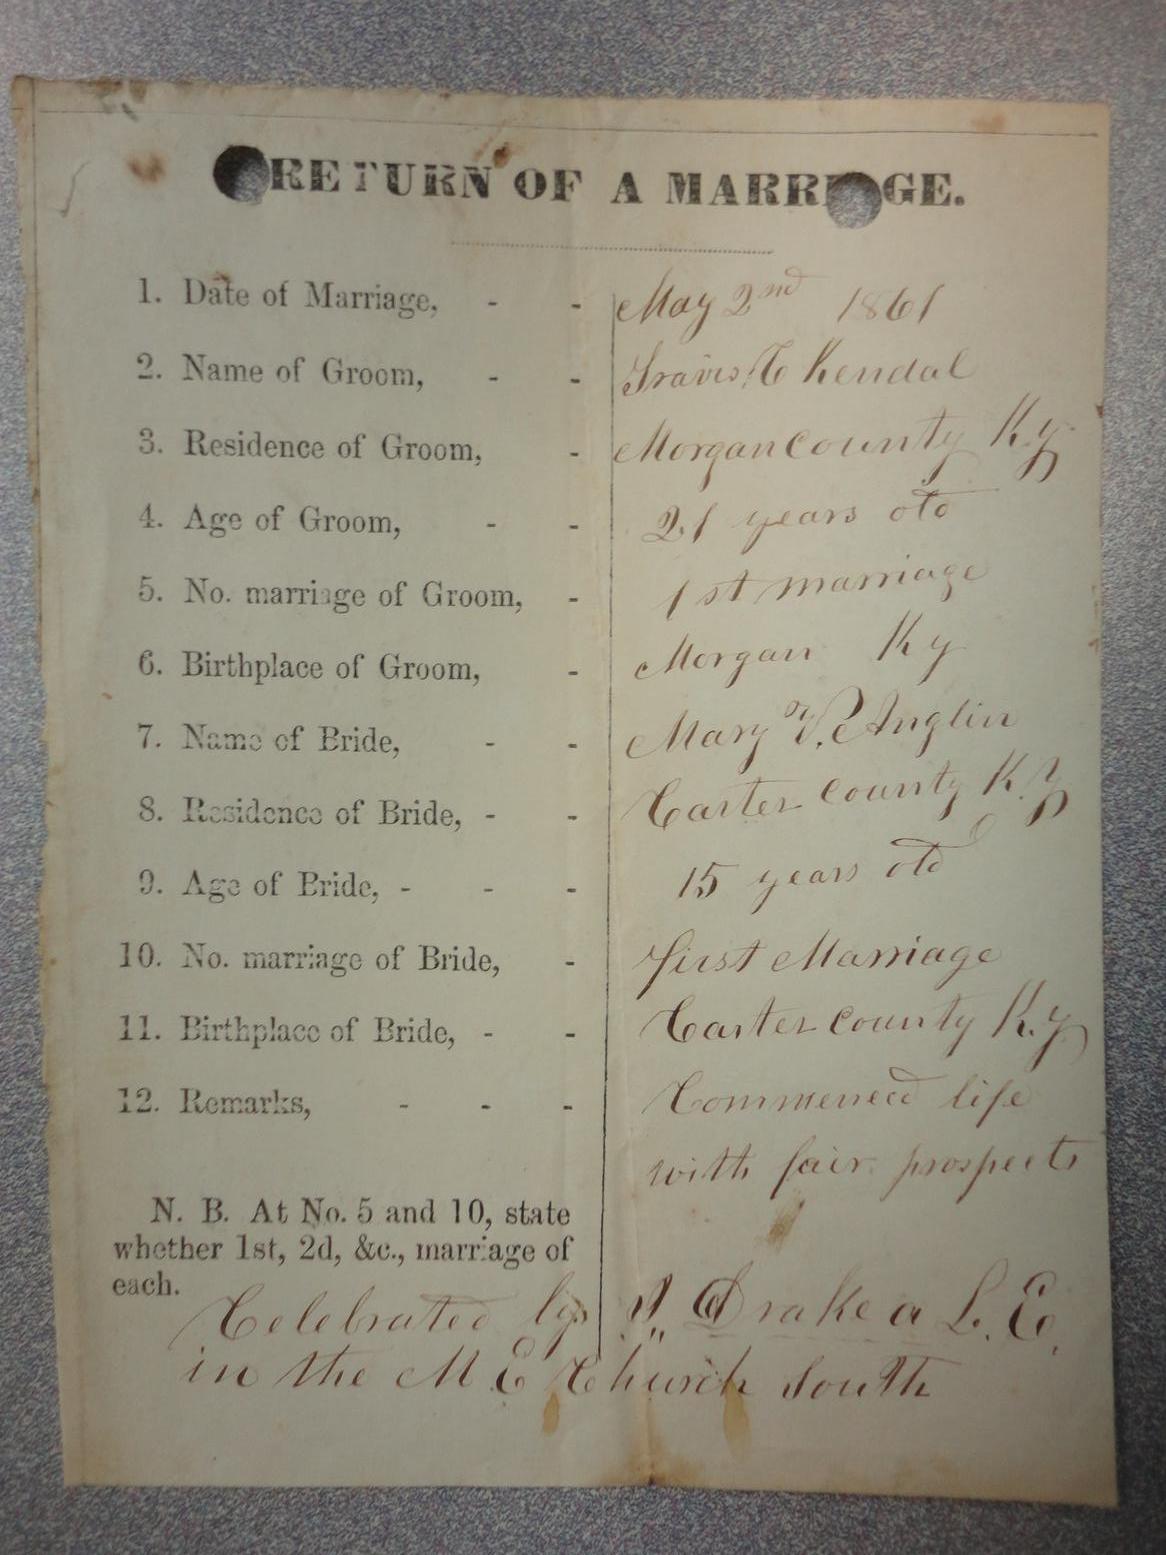 RETURN OF A MARRIAGE.
1. Date of Marriage, - - May 2nd 1861
2. Name of Groom, - - Travis C Kendal
3. Residence of Groom, - Morgan County Ky
4. Age of Groom, - - 21 years old
5. No. marriage of Groom, - 1st marriage
6. Birthplace of Groom, - Morgan Ky
7. Name of Bride, - - Mary Anglin
8. Residence of Bride, - - Carter County Ky
9. Age of Bride, - - - 15 years old
10. No. marriage of Bride, - first Marriage
11. Birthplace of Bride, - - Carter County Ky
12. Remarks, - - - Commenced life
with fair prospects
N. B. At No. 5 and 10, state
whether 1st, 2d, &c., marriage of
each.
Celebrated by Drake a L. E.
in the M. E Church South